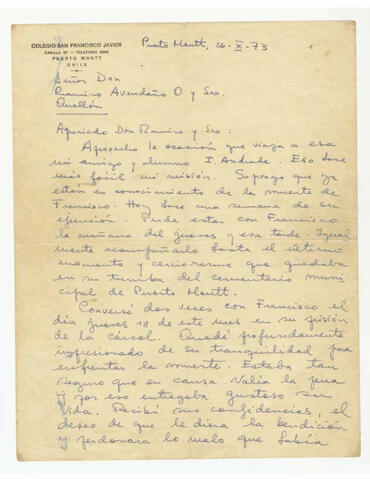 COLEGIO SAN FRANCISCO JAVIER
CASILLA 57 - TELEFONO
PUERTO MONTT
CHILE
Puerto Montt, 26-X-73
1
Señor Don
Ramiro Avendaño O y Sra.
Quellón
Apreciado Don Ramiro y Sra:
Aprovecho la ocasión que viaja a esa
mi amigo y alumno I. Andrade. Eso hace
más fácil mi misión. Supongo que ya
están en conocimiento de la muerte de
Francisco. Hoy hace una semana de su
ejecución. Pude estar con Francisco
la mañana del jueves y esa tarde. Igual
mente acompañarlo hasta el último
momento y cerciorarme que quedaba
en su tumba del cementerio muni
cipal de Puerto Montt.
Conversé dos veces con Francisco el
día jueves 18 de este mes en su prisión
de la cárcel. Quedé profundamente
impresionado de su tranquilidad para
enfrentar la muerte. Estaba tan
seguro que su causa valía la pena
y por eso entregaba gustoso su
vida. Recibí sus confidencias, el
deseo de que le diera la bendición
y perdonara lo malo que había